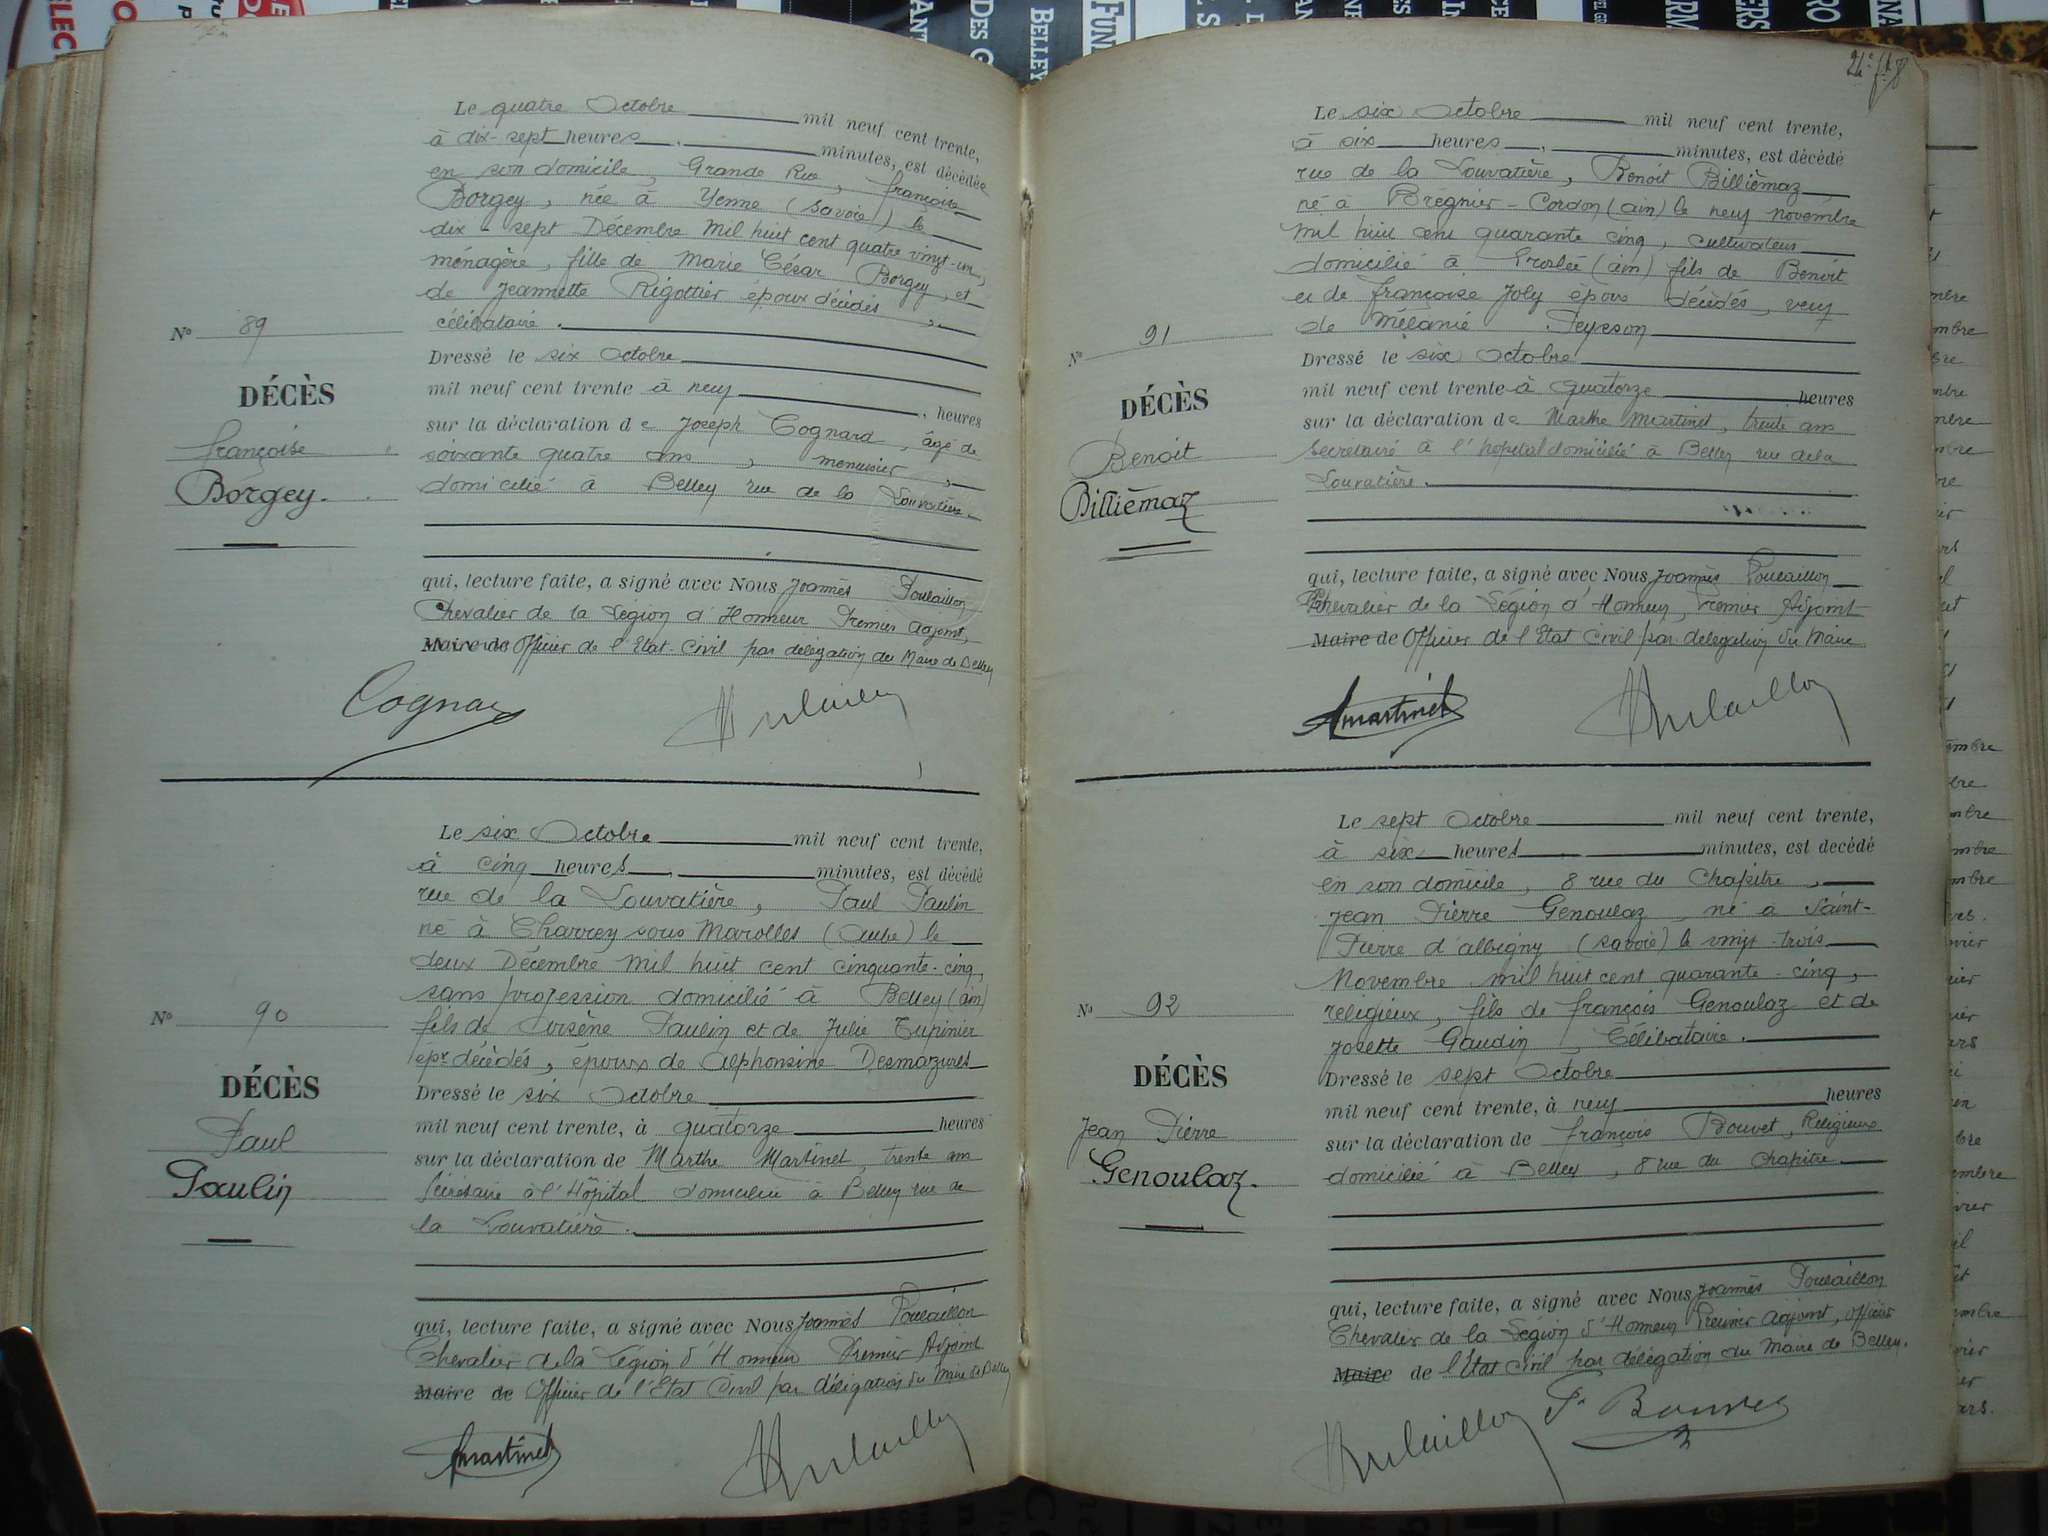 Le quatre Octobre mil neuf cent trente,
à dix-sept heures minutes, est décédée
en son domicile, Grande Rue, françoise
Borgey, née à Yenne (Savoie) le
dix-sept Décembre mil huit cent quatre vingt-un,
ménagère, fille de Marie César Borgey, et
de Jeannette Rigottier époux décédés,
célibataire.
N° 89
DÉCÈS
françoise
Borgey.
Dressé le six Octobre
mil neuf cent trente à neuf heures
sur la déclaration de Joseph Cognard, âgé de
soixante quatre ans, menuisier,
domicilié à Belley rue de la Louvatière.
qui, lecture faite, a signé avec Nous Joannès Poulaillon
Chevalier de la Légion d'Honneur Premier adjoint,
Maire de Officier de l'Etat-Civil par délégation du Maire de Belley
Le six Octobre mil neuf cent trente,
à cinq heures, minutes, est décédé
rue de la Louvatière, Paul Paulin
né à Charrey sous Marolles (Aube) le
deux Décembre mil huit cent cinquante-cinq,
sans profession domicilié à Belley (ain)
fils de Arsène Paulin et de Julie Tupinier
épx décédés, époux de Alphonsine Desmazures
N° 90
DÉCÈS
Paul
Paulin
Dressé le six Octobre
mil neuf cent trente, à quatorze heures
sur la déclaration de Marthe Martinet, trente ans
Secrétaire à l'Hôpital domiciliée à Belley rue de
la Louvatière.
qui, lecture faite, a signé avec Nous Joannès Poulaillon
Chevalier de la Légion d'Honneur Premier Adjoint
Maire de Officier de l'Etat Civil par délégation du Maire de Belley
Martinet
Le six Octobre mil neuf cent trente,
à six heures, minutes, est décédé
rue de la Louvatière, Benoit Billièmaz
né à Brégnier-Cordon (ain) le neuf novembre
mil huit cent quarante cinq, cultivateur
domicilié à Groslée (ain) fils de Benoit
et de françoise Joly époux décédés, veuf
de Mélanie Peysson
N° 91
DÉCÈS
Benoit
Billièmaz
Dressé le six Octobre
mil neuf cent trente à quatorze heures
sur la déclaration de Marthe Martinet, trente ans
Secrétaire à l'hôpital domicilié à Belley rue de la
Louvatière.
qui, lecture faite, a signé avec Nous Joannès Poulaillon
Chevalier de la Légion d'Honneur, Premier Adjoint
Maire de Officier de l'Etat Civil par délégation du Maire
Martinet Poulaillon
Le sept Octobre mil neuf cent trente,
à six heures minutes, est décédé
en son domicile, 8 rue du Chapitre,
Jean Pierre Genoulaz, né à Saint-
Pierre d'albigny (savoie) le vingt-trois
Novembre mil huit cent quarante-cinq,
religieux, fils de françois Genoulaz et de
Josette Gaudin, Célibataire.
N° 92
DÉCÈS
Jean Pierre
Genoulaz.
Dressé le sept Octobre
mil neuf cent trente, à neuf heures
sur la déclaration de françois Bouvet, Religieux
domicilié à Belley, 8 rue du Chapitre
qui, lecture faite, a signé avec Nous Joannès Poulaillon
Chevalier de la Légion d'Honneur Premier adjoint, officier
Maire de l'Etat Civil par délégation du Maire de Belley.
Poulaillon